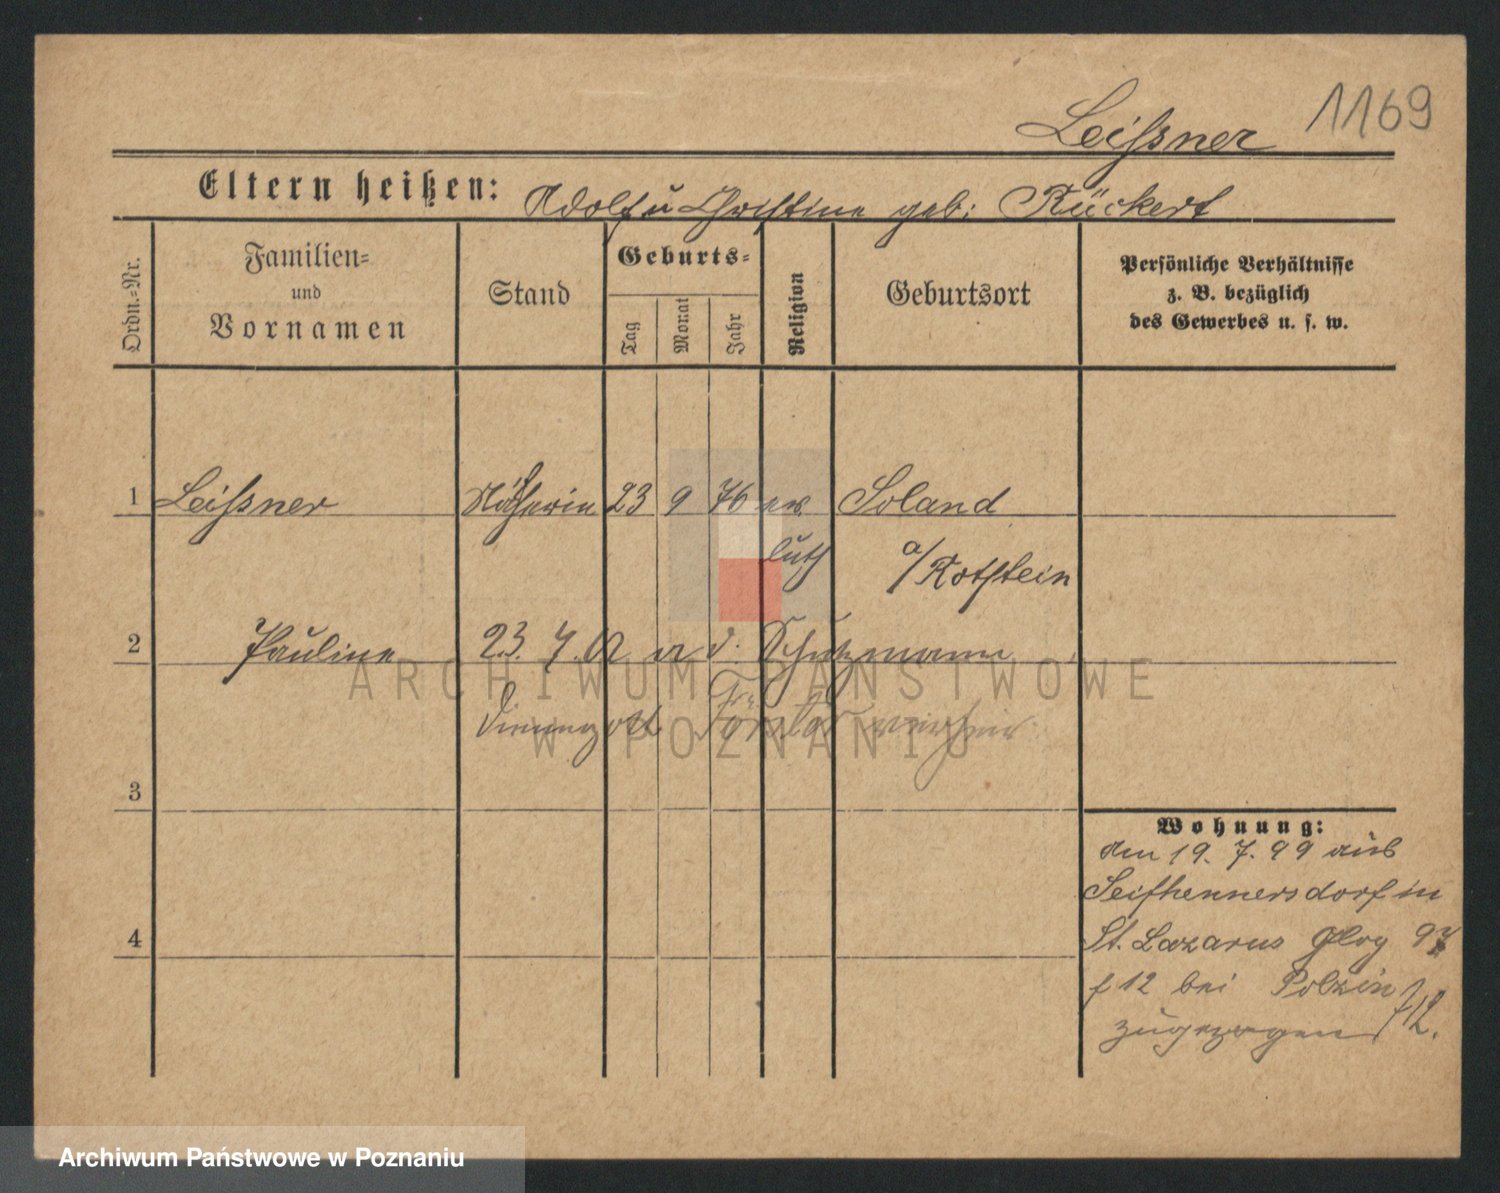 1169
Leißner
Eltern heißen: Adolf u Christine geb: Rückert
Ordn.-Nr.
Familien-
und
Vornamen
Stand
Geburts-
Tag
Monat
Jahr
Religion
Geburtsort
Persönliche Verhältnisse
z. B. bezüglich
des Gewerbes u. s. w.
1 Leißner Näherin 23 9 76 ev. Soland
luth a/Rotstein
2 Pauline 23. 7. a d. Schutzmann
ARCHIWUM PAŃSTWOWE
W POZNANIU
3
Wohnung:
Am 19. 7. 99 aus
Seifhennersdorf in
St. Lazarus Glog 97
f 12 bei Polzin
zugezogen 7/12.
4
Archiwum Państwowe w Poznaniu